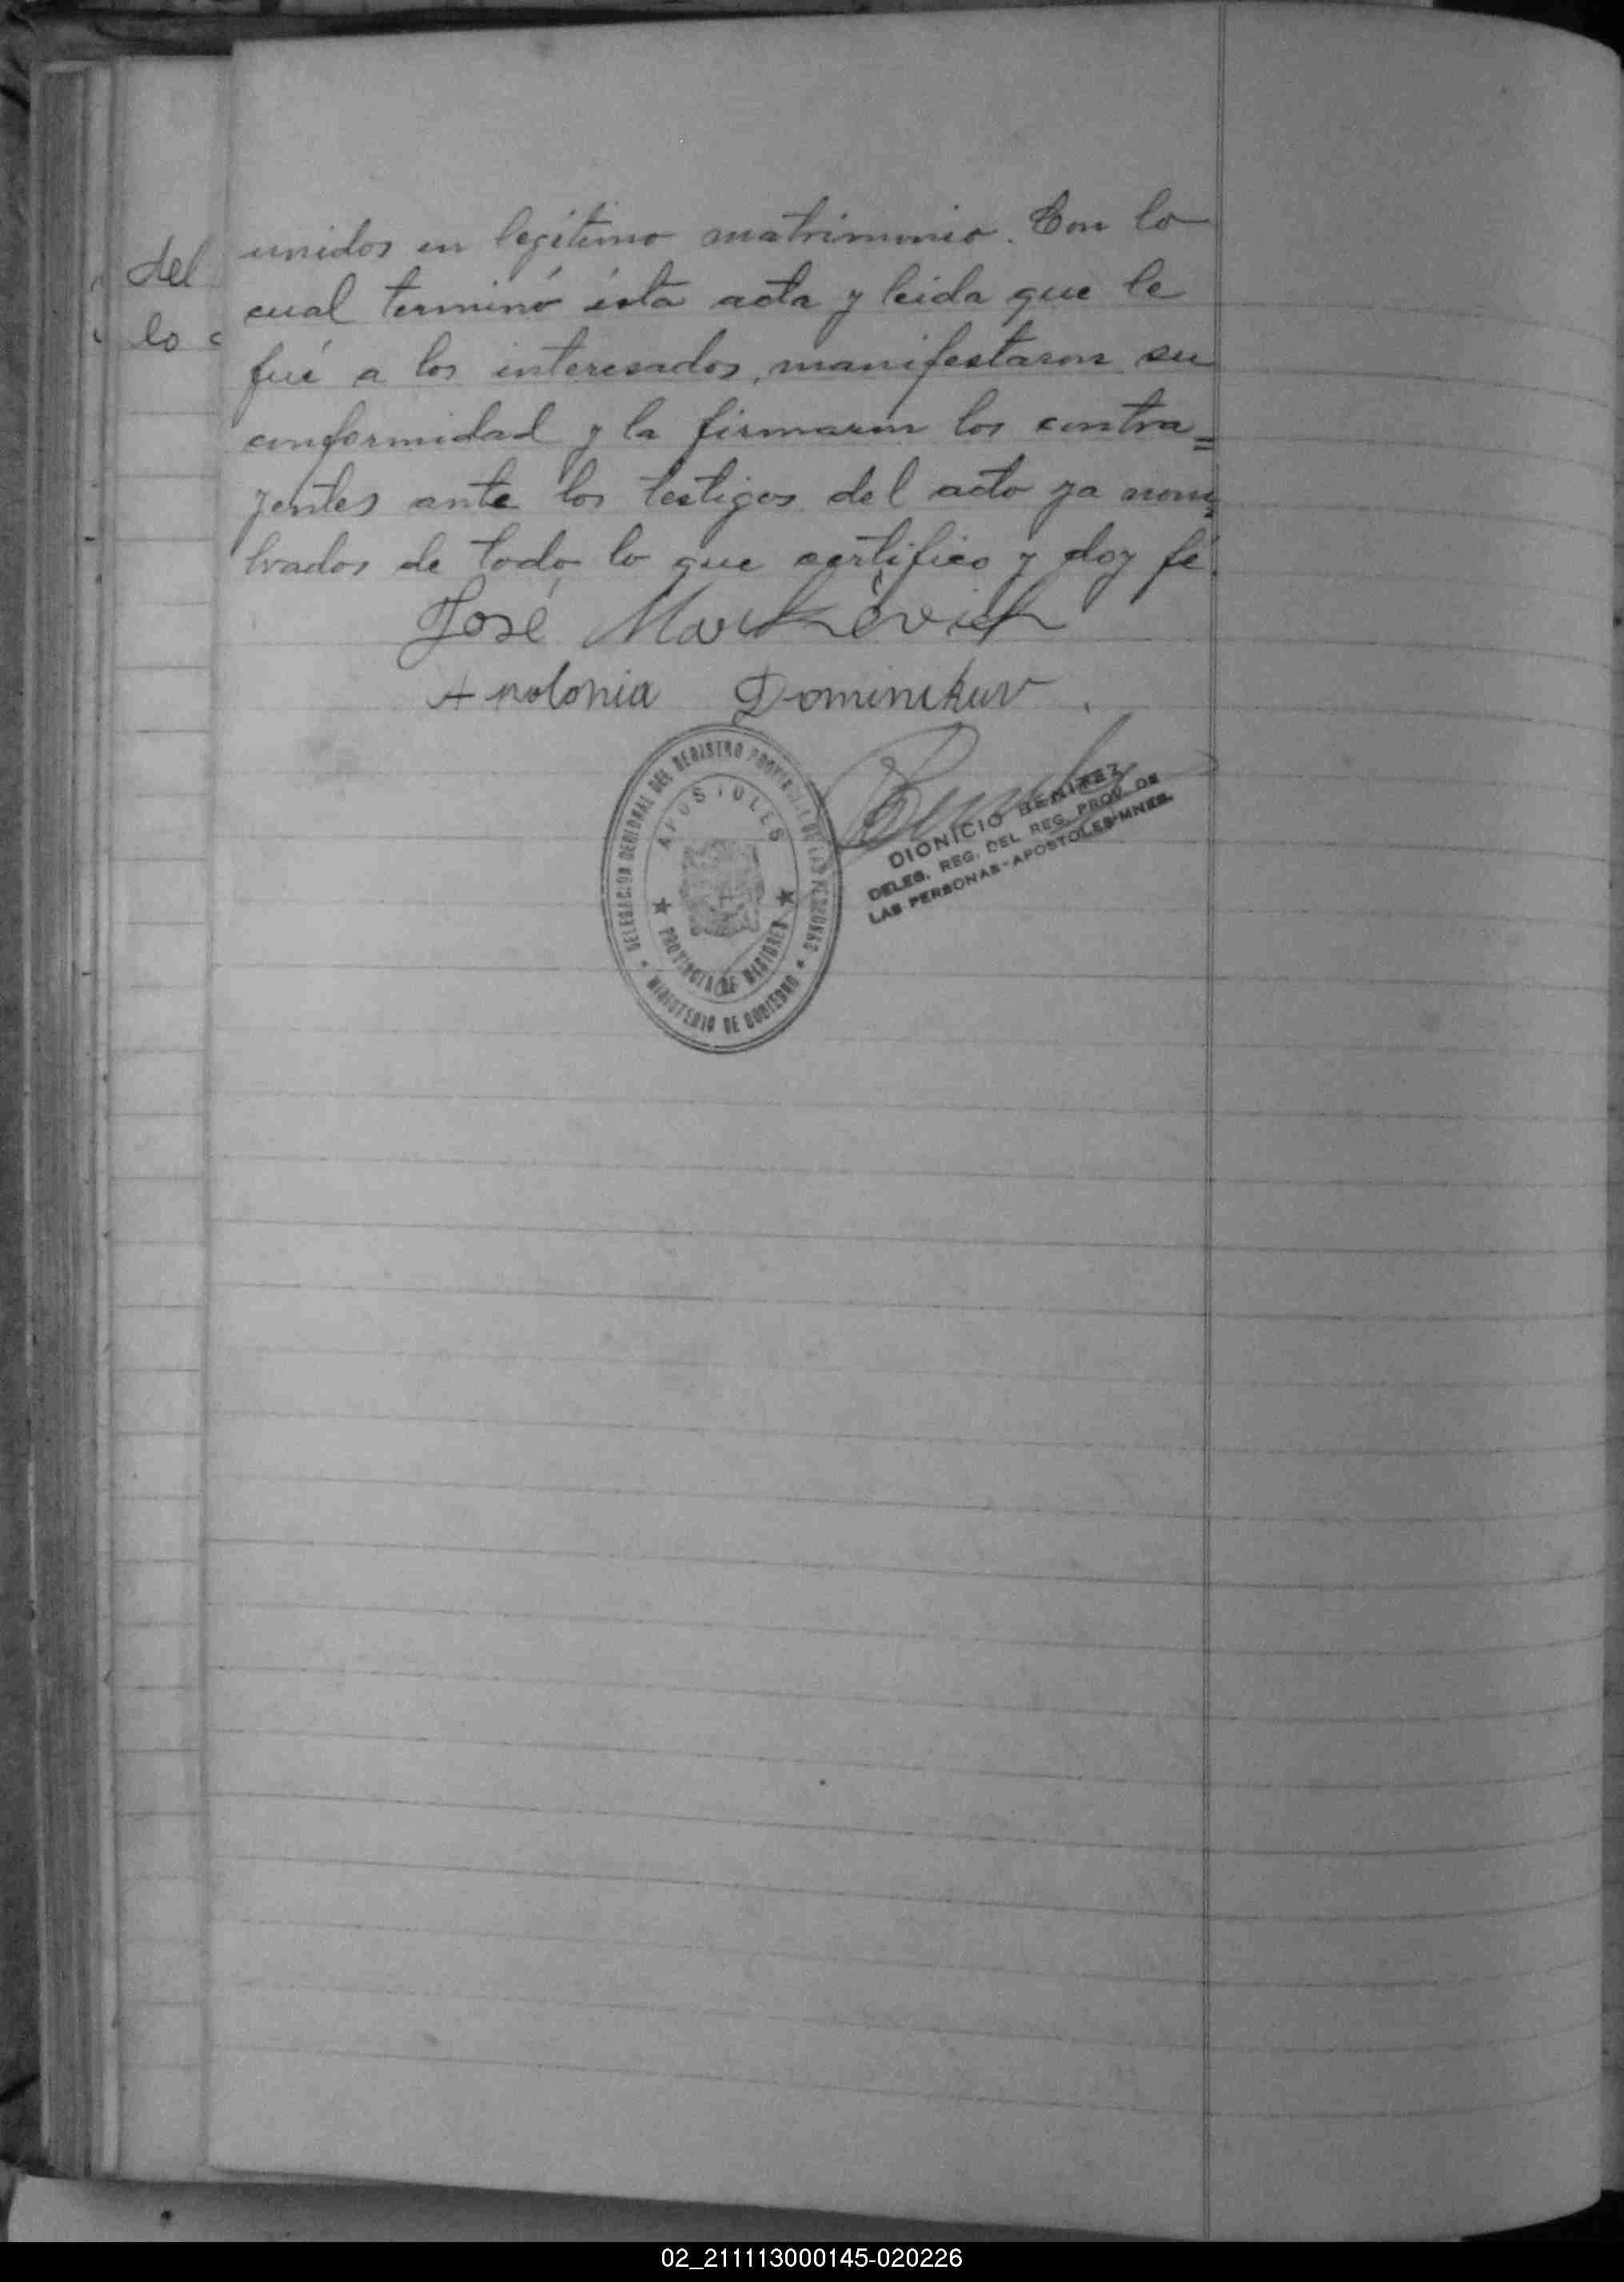 del
lo
unidos en legítimo matrimonio. Con lo
cual terminó ésta acta y leida que le
fué a los interesados, manifestaron su
conformidad y la firmaron los contra=
yentes ante los testigos del acto ya nom=
brados de todo lo que certifico y doy fé.
José Markévich
Apolonia Dominikuv.
DELEGACION REGIONAL DEL REGISTRO PROVINCIAL DE LAS PERSONAS
APOSTOLES
PROVINCIA DE MISIONES
MINISTERIO DE GOBIERNO
DIONICIO BENITEZ
DELEG. REG. DEL REG. PROV. DE
LAS PERSONAS-APOSTOLES-MNES.
02_211113000145-020226